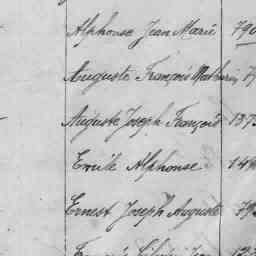 Alphonse Jean Marie 790
Auguste François Mathurin
Auguste Joseph François 137
Emile Alphonse 149
Ernest Joseph Auguste 792